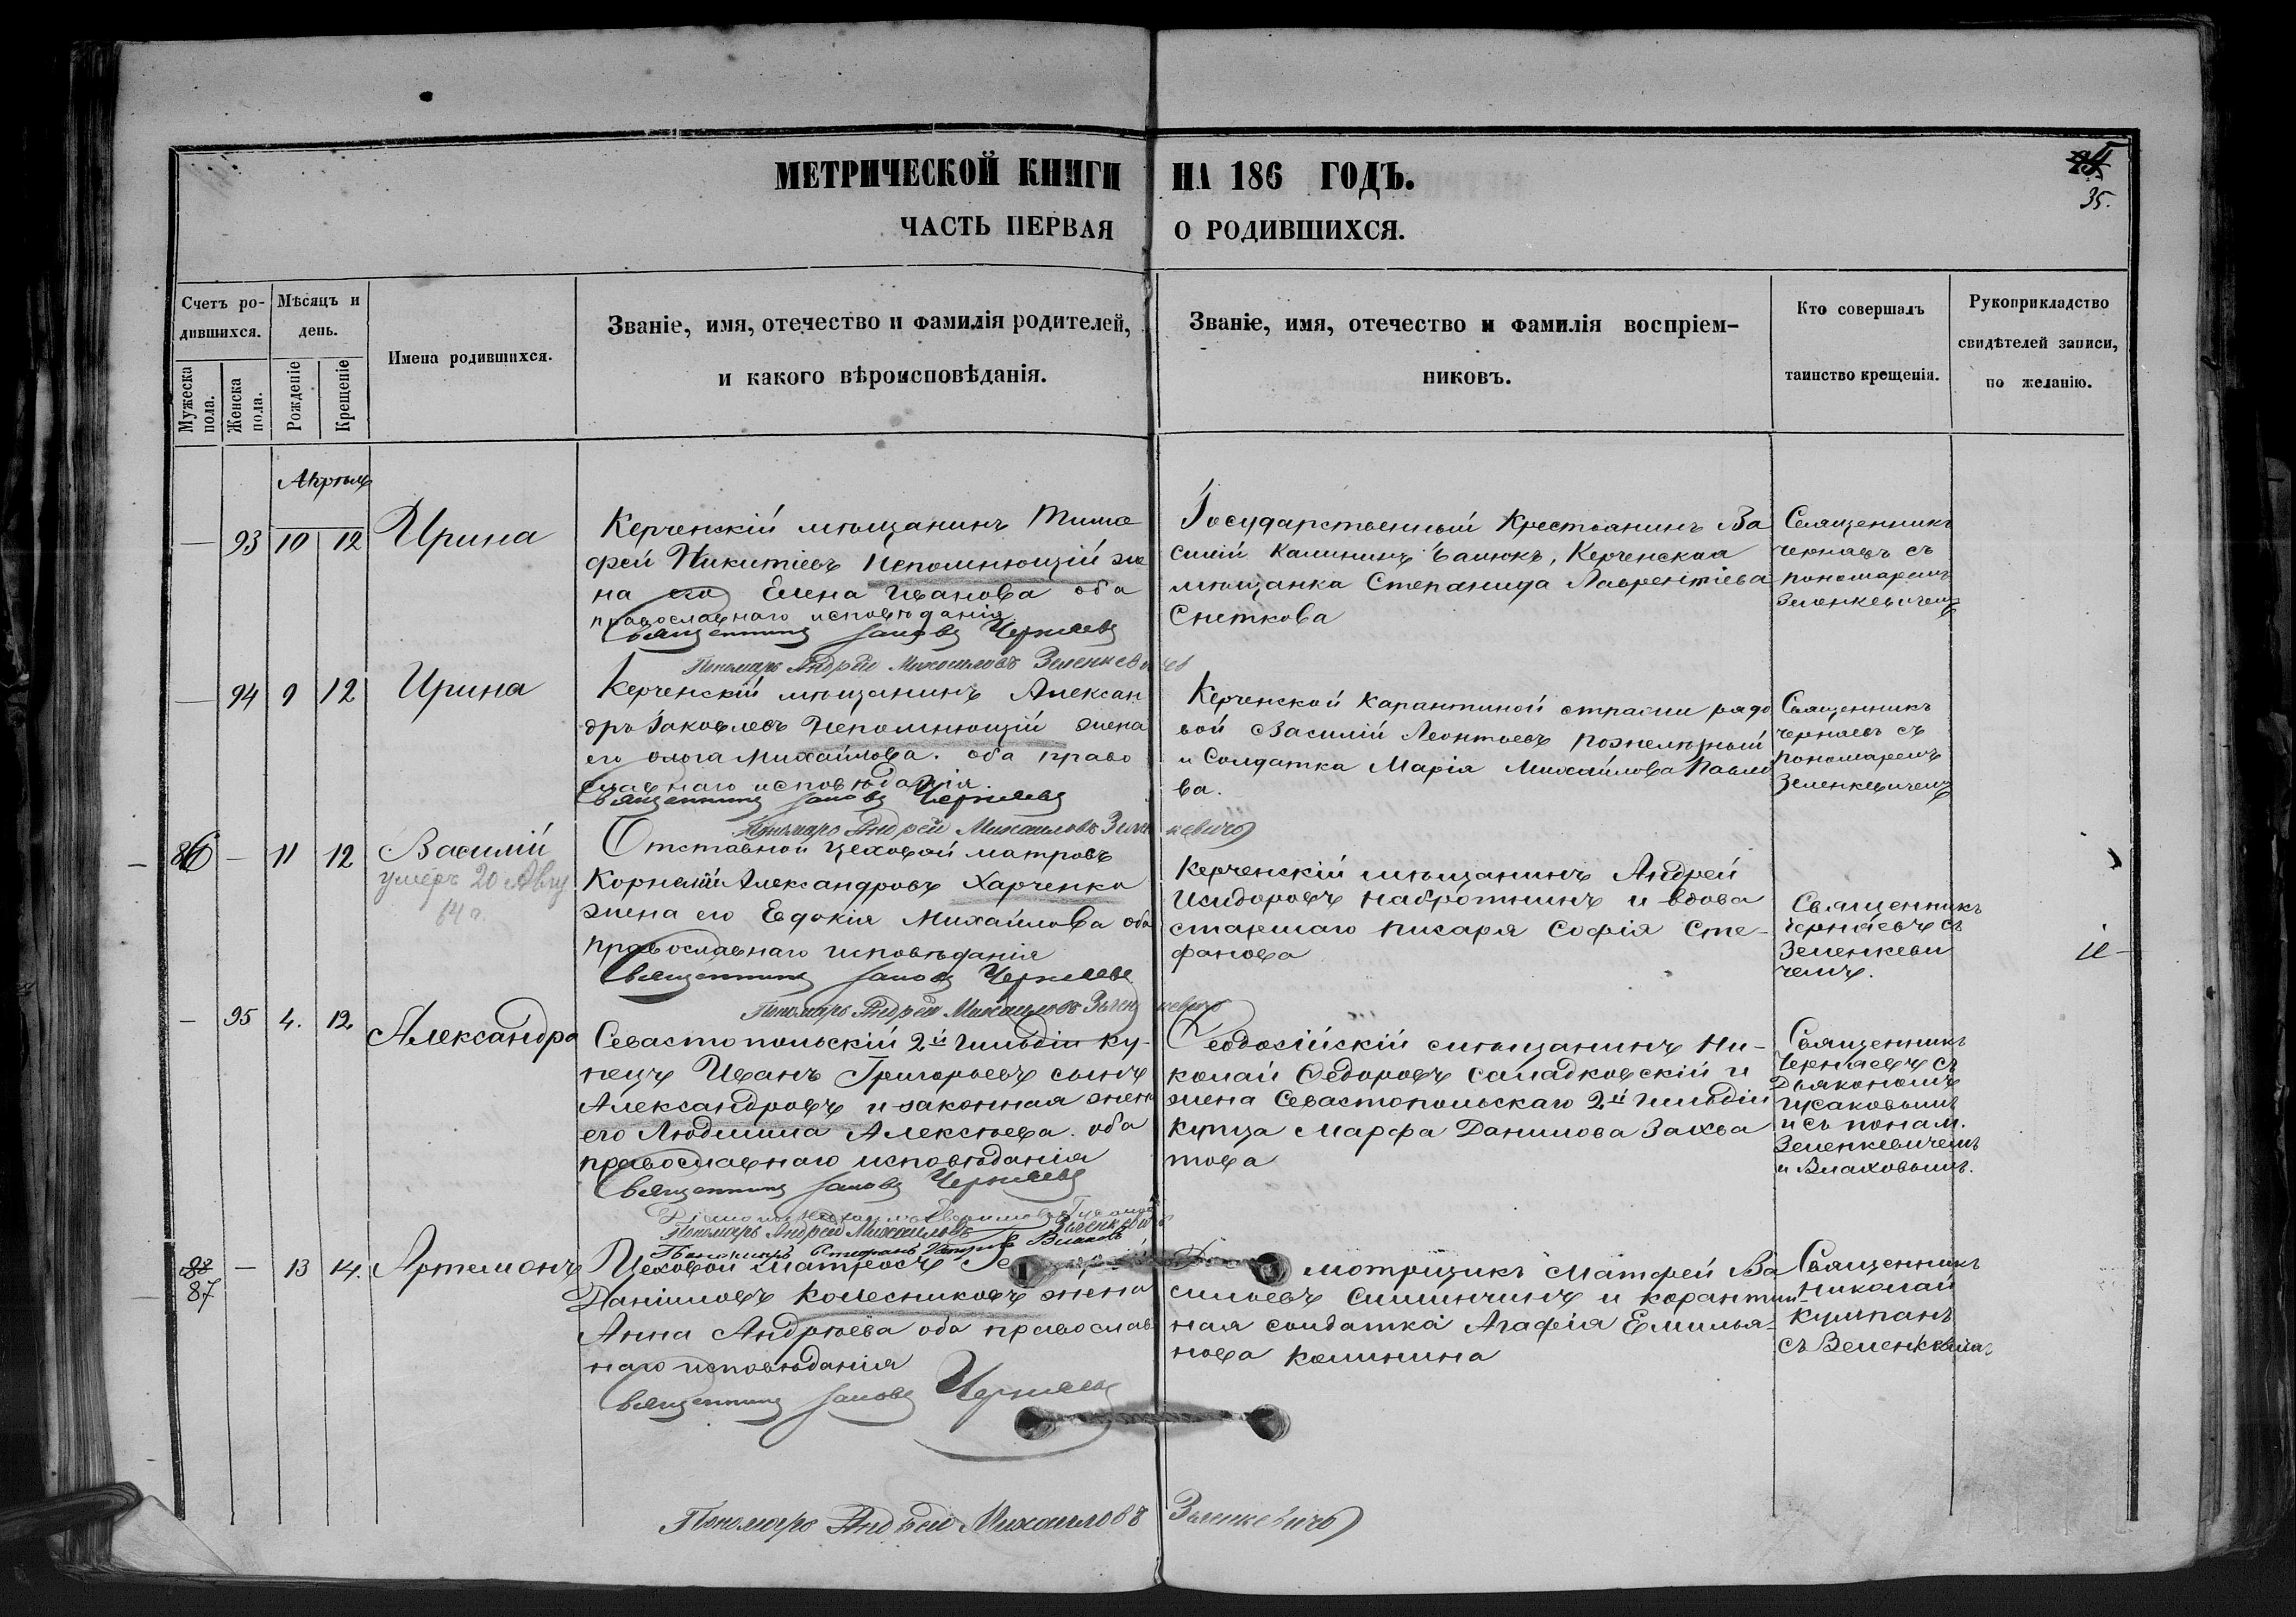 МЕТРИЧЕСКОЙ КНИГИ НА 186 ГОДЪ.
35.
ЧАСТЬ ПЕРВАЯ О РОДИВШИХСЯ.
Счетъ ро-
дившихся.
Мужеска пола.
Женска пола.
Мѣсяцъ и
день.
Рожденіе
Крещеніе
Имена родившихся.
Званіе, имя, отечество и фамилія родителей,
и какого вѣроисповѣданія.
Званіе, имя, отечество и фамилія воспріем-
никовъ.
Кто совершалъ
таинство крещенія.
Рукоприкладство
свидѣтелей записи,
по желанію.
Апрѣль
— 93 10 12 Ирина
Керченскій мѣщанинъ Тимо
фей Никитіевъ Непомнющій же
на его Елена Иванова оба
православнаго исповѣданія
Священникъ Іаковъ Черняевъ
Пономарь Андрей Михаиловъ Зеленкевичъ
Государственный Крестьянинъ Ва
силій Калининъ Баюкъ, Керченская
мѣщанка Степанида Лаврентіева
Снеткова
Священникъ
Черняевъ съ
пономаремъ
Зеленкевичемъ
— 94 9 12 Ирина
Керченскій мѣщанинъ Алексан
дръ Іаковлевъ Непомнющій жена
его Ольга Михайлова. оба право
славнаго исповѣданія.
Священникъ Іаковъ Черняевъ
Пономарь Андрей Михаиловъ Зеленкевичъ
Керченской Карантиной стражи рядо
вой Василій Леонтьевъ
и Солдатка Марія Михайлова Павло
ва.
Священникъ
Черняевъ съ
пономаремъ
Зеленкевичемъ
86 — 11 12 Василій
умеръ 20 Авгу
64 г.
Отставной цеховой матросъ
Корнелій Александровъ Харченко
жена его Евдокія Михайлова оба
православнаго исповѣданія
Священникъ Іаковъ Черняевъ
Пономарь Андрей Михаиловъ Зеленкевичъ
Керченскій мѣщанинъ Андрей
Исидоровъ и вдова
старшаго писаря Софія Сте-
фанова
Священникъ
Черняевъ съ
Зеленкеви
чемъ.
— 95 4. 12 Александра
Севастопольскій 2й гильдіи ку-
пецъ Иванъ Григорьевъ сынъ
Александровъ и законная жена
его Людмила Алексѣева. оба
православнаго исповѣданія
Священникъ Іаковъ Черняевъ
Пономарь Андрей Михаиловъ Зеленкевичъ
Пономарь Стефанъ Влаховъ
Феодосійскій мѣщанинъ Ни-
колай Федоровъ Саладковскій и
жена Севастопольскаго 2й гильдіи
купца Марфа Данилова Захва
това
Священникъ
Черняевъ съ
Дьякономъ
и съ поном.
Зеленкевичемъ
и Влаховымъ.
88
87 — 13 14. Артемонъ
Цеховой матросъ
Даніиловъ Колесниковъ жена
Анна Андрѣева оба православ
наго исповѣданія
Священникъ Іаковъ Черняевъ
Пономарь Андрей Михаиловъ Зеленкевичъ
Матфей Ва
сильевъ и карантин-
ная солдатка Агафія Емилья-
нова Калинина
Священникъ
Николай
Кумпанъ
съ Зеленкевичемъ